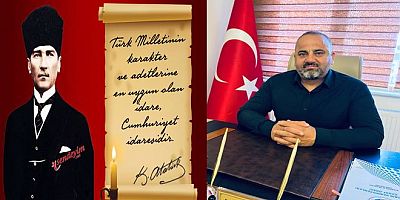 Türk Milletinin
karakter
ve adetlerine
en uygun olan
idare,
Cumhuriyet
idaresidir.
K. Atatürk